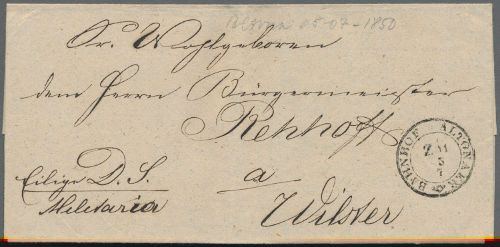 Altona 05-07-1850
Sr. Wohlgeboren
dem Herrn Bürgermeister
Rehhoff
Eilige D. S.
Militaria
a
Wilster
BAHNHOF ALTONAER
Z II
5
7